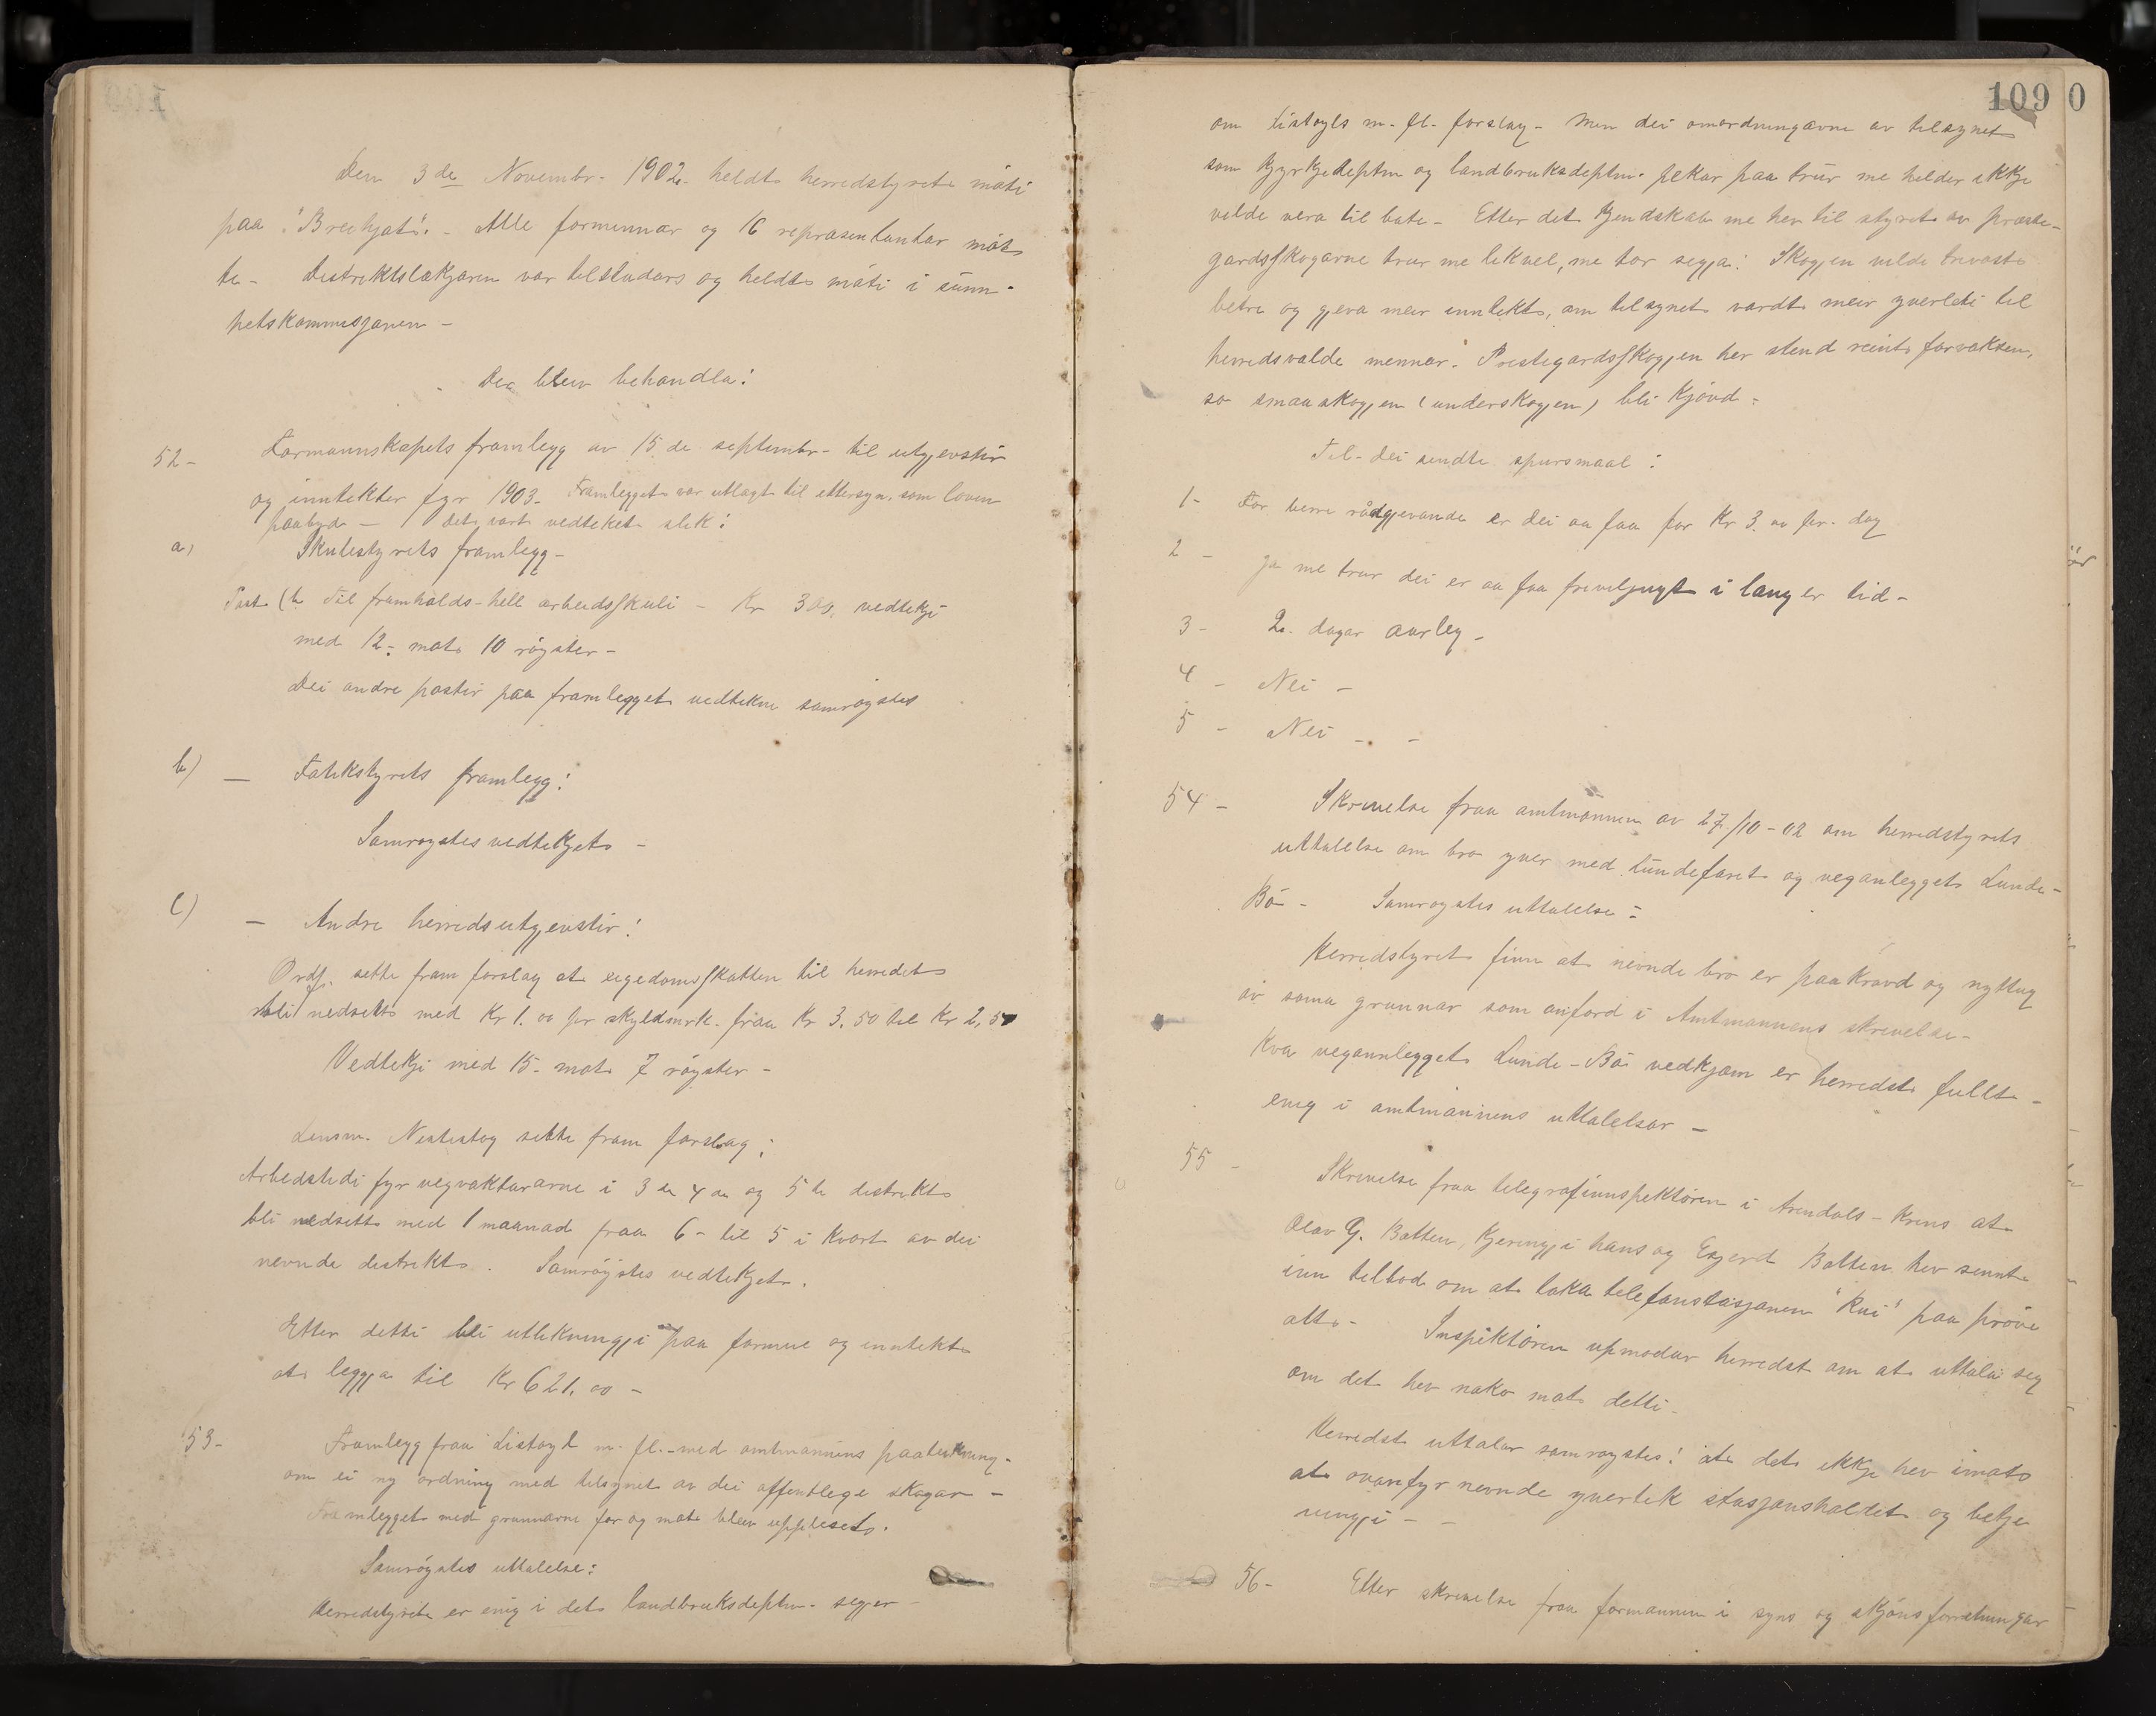 Den 3de Novembr. 1902 heldt herredstyret møti
paa "Breikjat". - Alle formennar og 16 representantar møt
te - Distriktslækjaren var tilstadars og heldt møti i sunn-
hetskommisjonen -
Der bleiv behandla:
52 - Formannskapets framlegg av 15de septembr. til utgjevstir
og inntekter fyr 1903 - Framlegget var utlagt til ettersyn, som loven
paabyd - Det vart vedteket slik:
a) Skulestyrets framlegg -
Post (b Til framhalds-hell arbeidsskuli - Kr 300, vedtekji
med 12 - mot 10 røyster -
Dei andre postir paa framlegget vedtekne samrøystes
b) — Fatikstyrets framlegg:
Samrøystes vedtekjet -
c) — Andre herredsutgjevstir:
Ordf. sette fram forslag at eigedomsskatten til herredet
bli nedsett med Kr 1.00 pr skyldmrk. fraa Kr 3,50 til Kr 2,50
Vedtekji med 15 - mot 7 røyster -
Lensm. Nestestog sette fram forslag:
Arbeidstidi fyr vegvaktararne i 3de 4de og 5te distrikt
bli nedsett med 1 maanad fraa 6 - til 5 i kvart av dei
nevnde distrikt. Samrøystes vedtekjet.
Etter detti bli utlikningji paa formue og inntekt
at leggja til Kr 621,00 -
53 - Framlegg fraa Listoyl m. fl. - med amtmannens paateikning -
om ei ny ordning med tilsynet av dei offentlege skogar -
Framlegget med grunnarne for og mot bleiv uppleset.
Samrøystes uttalelse:
Herredstyret er enig i det landbruksdeptm. segjer -
109 0
om Listoyls m. fl. forslag - Men dei omordningarne av tilsynet
som Kyrkjedeptm og landbruksdeptm. pekar paa trur me helder ikkje
vilde vera til bate - Etter det kjendskab me hev til styret av preste-
gardsskogarne trur me likvel, me tor segja: Skogjen vilde trivast
betre og gjeva meir inntekt, om tilsynet vardt meir yverleti til
herredsvalde mennar. Prestegardsskogjen her stend reint forvaksen,
so smaaskogjen (underskogjen) bli kjøvd -
Til dei sendte spursmaal:
1 - For berre rådgjevande er dei aa faa for Kr 3.00 pr. dag
2 - Ja me trur dei er aa faa friviljugt i lang er tid -
3 - 2 dagar aarleg -
4 - Nei -
5 - Nei - -
54 - Skrivelse fraa amtmannen av 27/10-02 om herredstyrets
uttalelse om bro yver med Lundefaret og veganlegget Lunde -
Bø - Samrøystes uttalelse:
Herredstyret finn at nevnde bro er paakravd og nyttug
av sama grunnar som anførd i Amtmannens skrivelse -
Kva vegannlegget Lunde - Bø vedkjem er herredst fullt -
enig i amtmannens uttalelsar -
55 - Skrivelse fraa telegrafinnspektøren i Arendals-Krins at
Olav G. Batten, kjeringji hans og Egjerd Batten hev sennt
inn tilbod om at taka telefonstasjonen "Rui" paa prøve
att - Inspektøren upmodar herredst om at uttala seg
om det hev noko mot detti -
Herredst uttalar samrøystes: at det ikkje hev imot
at ovanfyr nevnde yvertek stasjonshaldet og betje
ningji - -
56 - Etter skrivelse fraa formannen i syns og skjønsforretningar